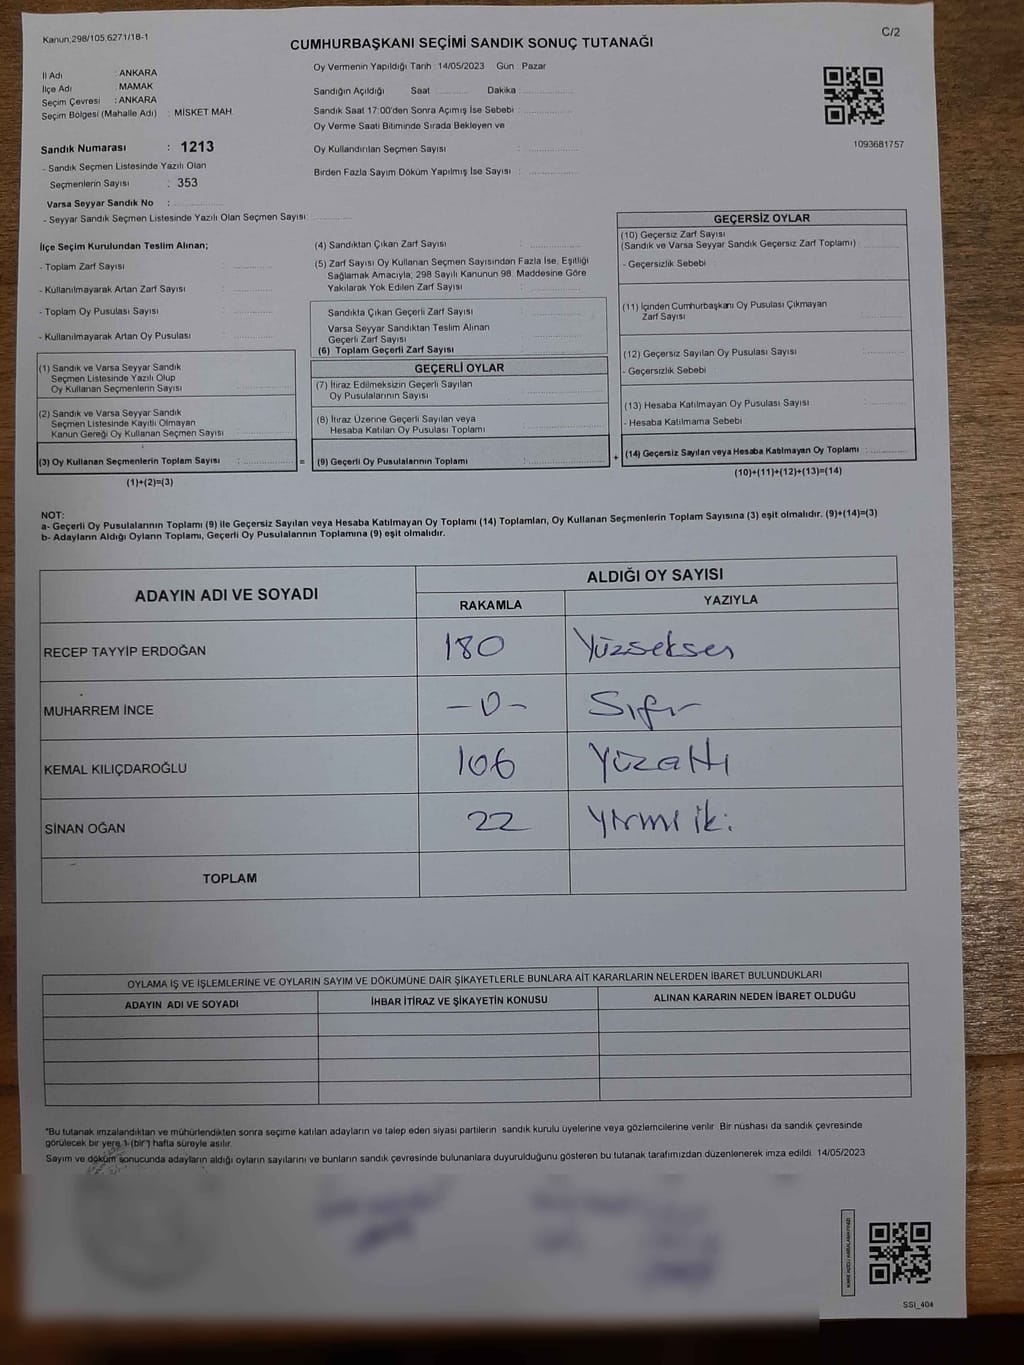 Kanun;298/105,6271/18-1
C/2
CUMHURBAŞKANI SEÇİMİ SANDIK SONUÇ TUTANAĞI
Oy Vermenin Yapıldığı Tarih : 14/05/2023 Gün : Pazar
İl Adı : ANKARA
İlçe Adı : MAMAK
Seçim Çevresi : ANKARA
Seçim Bölgesi (Mahalle Adı) : MİSKET MAH.
Sandığın Açıldığı Saat : Dakika :
Sandık Saat 17:00'den Sonra Açımış İse Sebebi :
Oy Verme Saati Bitiminde Sırada Bekleyen ve
Oy Kullandırılan Seçmen Sayısı :
Birden Fazla Sayım Döküm Yapılmış İse Sayısı :
1093681757
Sandık Numarası : 1213
- Sandık Seçmen Listesinde Yazılı Olan
Seçmenlerin Sayısı : 353
Varsa Seyyar Sandık No :
- Seyyar Sandık Seçmen Listesinde Yazılı Olan Seçmen Sayısı:
İlçe Seçim Kurulundan Teslim Alınan;
- Toplam Zarf Sayısı :
- Kullanılmayarak Artan Zarf Sayısı :
- Toplam Oy Pusulası Sayısı :
- Kullanılmayarak Artan Oy Pusulası :
(1) Sandık ve Varsa Seyyar Sandık
Seçmen Listesinde Yazılı Olup
Oy Kullanan Seçmenlerin Sayısı :
(2) Sandık ve Varsa Seyyar Sandık
Seçmen Listesinde Kayıtlı Olmayan
Kanun Gereği Oy Kullanan Seçmen Sayısı :
(3) Oy Kullanan Seçmenlerin Toplam Sayısı : =
(1)+(2)=(3)
(4) Sandıktan Çıkan Zarf Sayısı :
(5) Zarf Sayısı Oy Kullanan Seçmen Sayısından Fazla İse, Eşitliği
Sağlamak Amacıyla, 298 Sayılı Kanunun 98. Maddesine Göre
Yakılarak Yok Edilen Zarf Sayısı :
Sandıkta Çıkan Geçerli Zarf Sayısı :
Varsa Seyyar Sandıktan Teslim Alınan
Geçerli Zarf Sayısı :
(6) Toplam Geçerli Zarf Sayısı :
GEÇERLİ OYLAR
(7) İtiraz Edilmeksizin Geçerli Sayılan
Oy Pusulalarının Sayısı :
(8) İtiraz Üzerine Geçerli Sayılan veya
Hesaba Katılan Oy Pusulası Toplamı :
(9) Geçerli Oy Pusulalarının Toplamı : +
GEÇERSİZ OYLAR
(10) Geçersiz Zarf Sayısı
(Sandık ve Varsa Seyyar Sandık Geçersiz Zarf Toplamı) :
- Geçersizlik Sebebi :
(11) İçinden Cumhurbaşkanı Oy Pusulası Çıkmayan
Zarf Sayısı :
(12) Geçersiz Sayılan Oy Pusulası Sayısı :
- Geçersizlik Sebebi :
(13) Hesaba Katılmayan Oy Pusulası Sayısı :
- Hesaba Katılmama Sebebi :
(14) Geçersiz Sayılan veya Hesaba Katılmayan Oy Toplamı :
(10)+(11)+(12)+(13)=(14)
NOT:
a- Geçerli Oy Pusulalarının Toplamı (9) ile Geçersiz Sayılan veya Hesaba Katılmayan Oy Toplamı (14) Toplamları, Oy Kullanan Seçmenlerin Toplam Sayısına (3) eşit olmalıdır. (9)+(14)=(3)
b- Adayların Aldığı Oyların Toplamı, Geçerli Oy Pusulalarının Toplamına (9) eşit olmalıdır.
ADAYIN ADI VE SOYADI
ALDIĞI OY SAYISI
RAKAMLA YAZIYLA
RECEP TAYYİP ERDOĞAN 180 Yüzseksen
MUHARREM İNCE -0- Sıfır
KEMAL KILIÇDAROĞLU 106 Yüzaltı
SİNAN OĞAN 22 Yirmi iki
TOPLAM
OYLAMA İŞ VE İŞLEMLERİNE VE OYLARIN SAYIM VE DÖKÜMÜNE DAİR ŞİKAYETLERLE BUNLARA AİT KARARLARIN NELERDEN İBARET BULUNDUKLARI
ADAYIN ADI VE SOYADI İHBAR İTİRAZ VE ŞİKAYETİN KONUSU ALINAN KARARIN NEDEN İBARET OLDUĞU
"Bu tutanak imzalandıktan ve mühürlendikten sonra seçime katılan adayların ve talep eden siyasi partilerin sandık kurulu üyelerine veya gözlemcilerine verilir. Bir nüshası da sandık çevresinde
görülecek bir yere 1 (bir) hafta süreyle asılır.
Sayım ve döküm sonucunda adayların aldığı oyların sayılarını ve bunların sandık çevresinde bulunanlara duyurulduğunu gösteren bu tutanak tarafımızdan düzenlenerek imza edildi. 14/05/2023
SSI_404